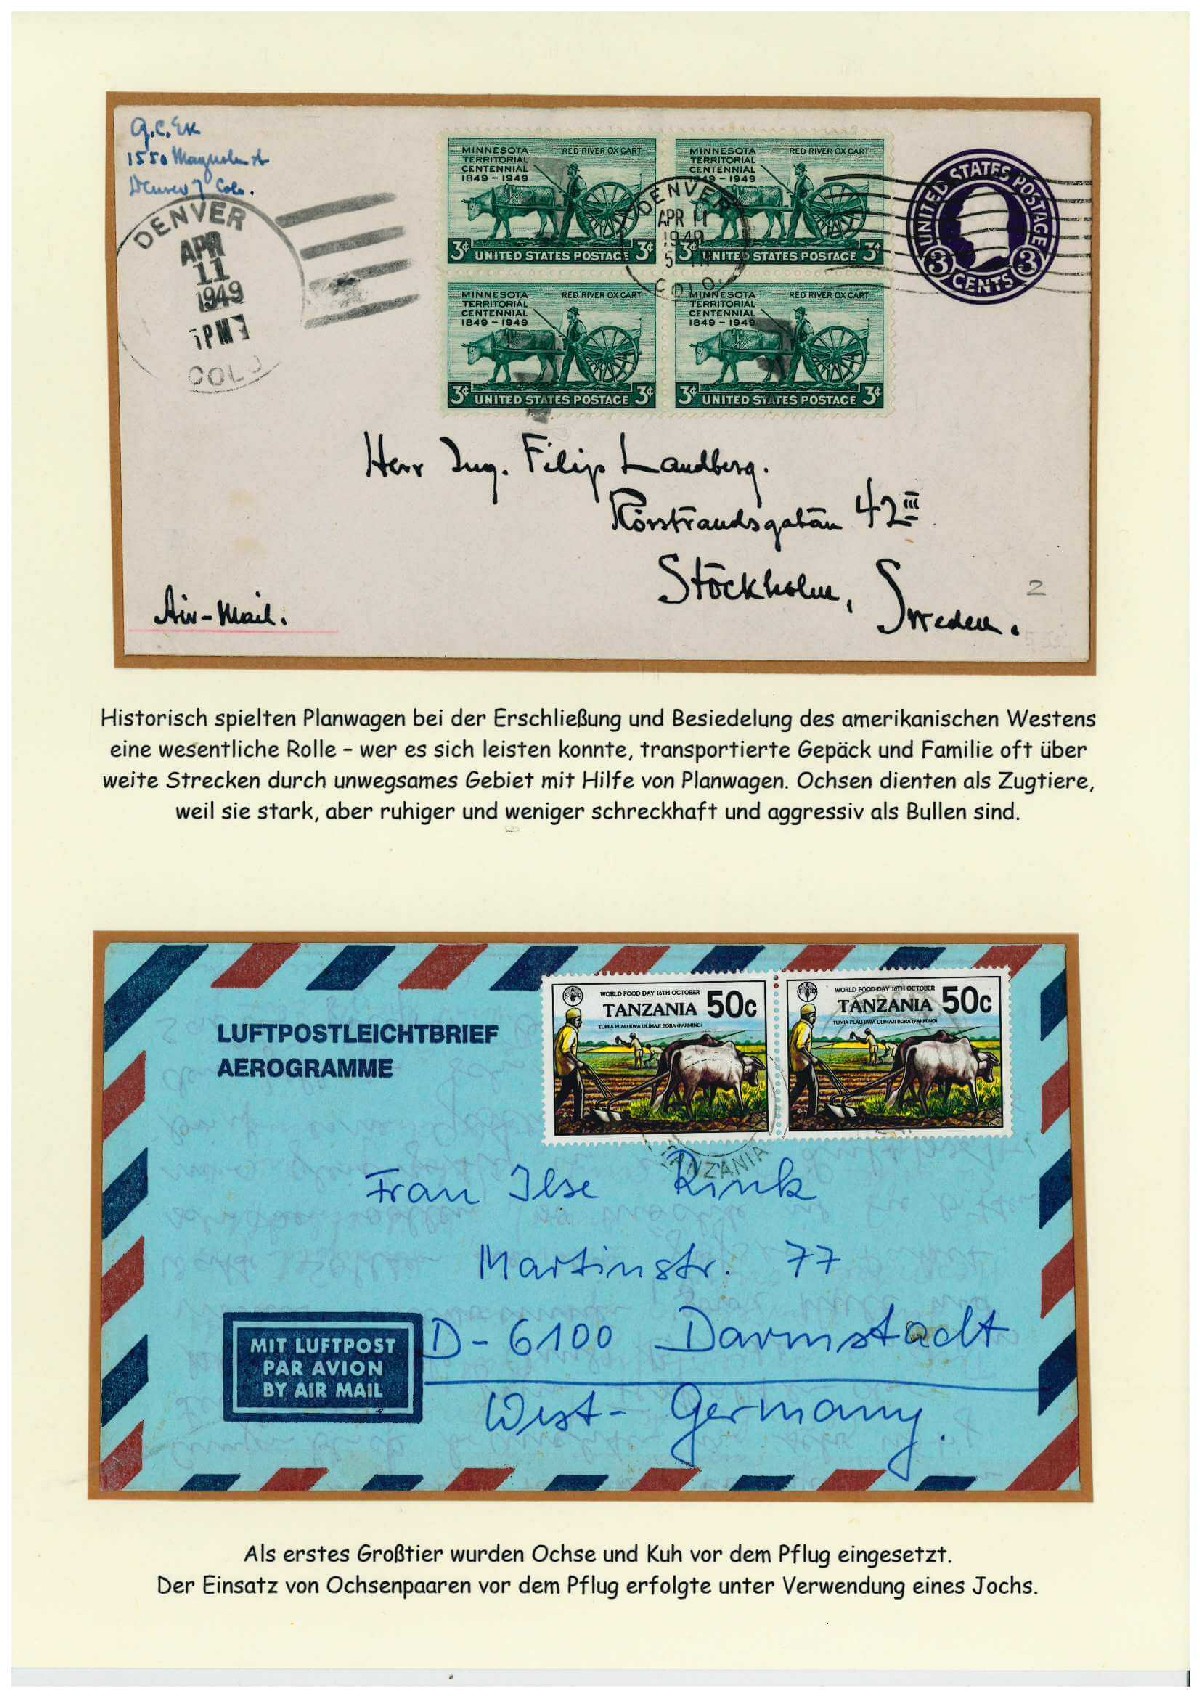 G.C. Ek
1550 Magnolia St
Denver 7 Colo.
DENVER
APR
11
1949
5 PM
COLO
MINNESOTA TERRITORIAL CENTENNIAL 1849-1949
RED RIVER OX CART
3¢ UNITED STATES POSTAGE 3¢
MINNESOTA TERRITORIAL CENTENNIAL 1849-1949
RED RIVER OX CART
3¢ UNITED STATES POSTAGE 3¢
DENVER
APR 11
1949
5
COLO.
UNITED STATES POSTAGE
3 CENTS 3
MINNESOTA TERRITORIAL CENTENNIAL 1849-1949
RED RIVER OX CART
3¢ UNITED STATES POSTAGE 3¢
MINNESOTA TERRITORIAL CENTENNIAL 1849-1949
RED RIVER OX CART
3¢ UNITED STATES POSTAGE 3¢
Herr Ing. Filip Landberg.
Rörstrandsgatan 42 III
Stockholm, Sweden.
Air-Mail.
2
Historisch spielten Planwagen bei der Erschließung und Besiedelung des amerikanischen Westens
eine wesentliche Rolle – wer es sich leisten konnte, transportierte Gepäck und Familie oft über
weite Strecken durch unwegsames Gebiet mit Hilfe von Planwagen. Ochsen dienten als Zugtiere,
weil sie stark, aber ruhiger und weniger schreckhaft und aggressiv als Bullen sind.
WORLD FOOD DAY 16TH OCTOBER
TANZANIA 50c
WORLD FOOD DAY 16TH OCTOBER
TANZANIA 50c
LUFTPOSTLEICHTBRIEF
AEROGRAMME
TANZANIA
Frau Ilse Rink
Martinstr. 77
D-6100 Darmstadt
West-Germany.
MIT LUFTPOST
PAR AVION
BY AIR MAIL
Als erstes Großtier wurden Ochse und Kuh vor dem Pflug eingesetzt.
Der Einsatz von Ochsenpaaren vor dem Pflug erfolgte unter Verwendung eines Jochs.